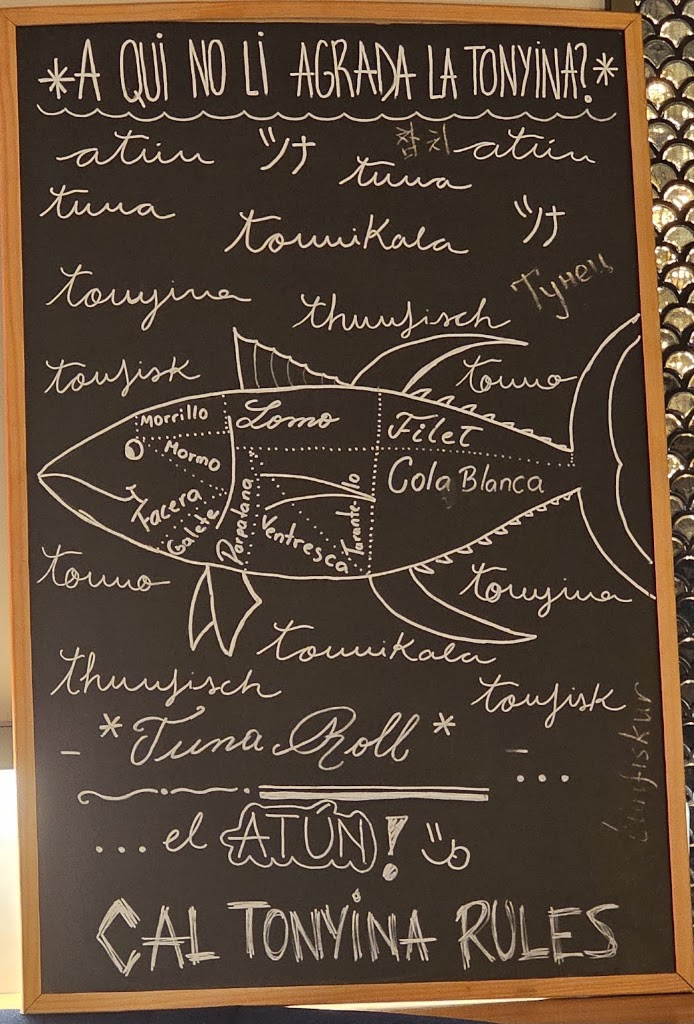 *A QUI NO LI AGRADA LA TONYINA?*
atún ツナ 참치 atún
tuna tuna
tonnikala ツナ
tonyina Тунец
thunfisch
tonfisk tonno
Morrillo Lomo Filet
Mormo Cola Blanca
Facera
Galete Parpatana Ventresca Tarantello
tonno tonyina
tonnikala
thunfisch tonfisk
- *Tuna Roll* - ...
túnfiskur
... el ATÚN!
CAL TONYINA RULES